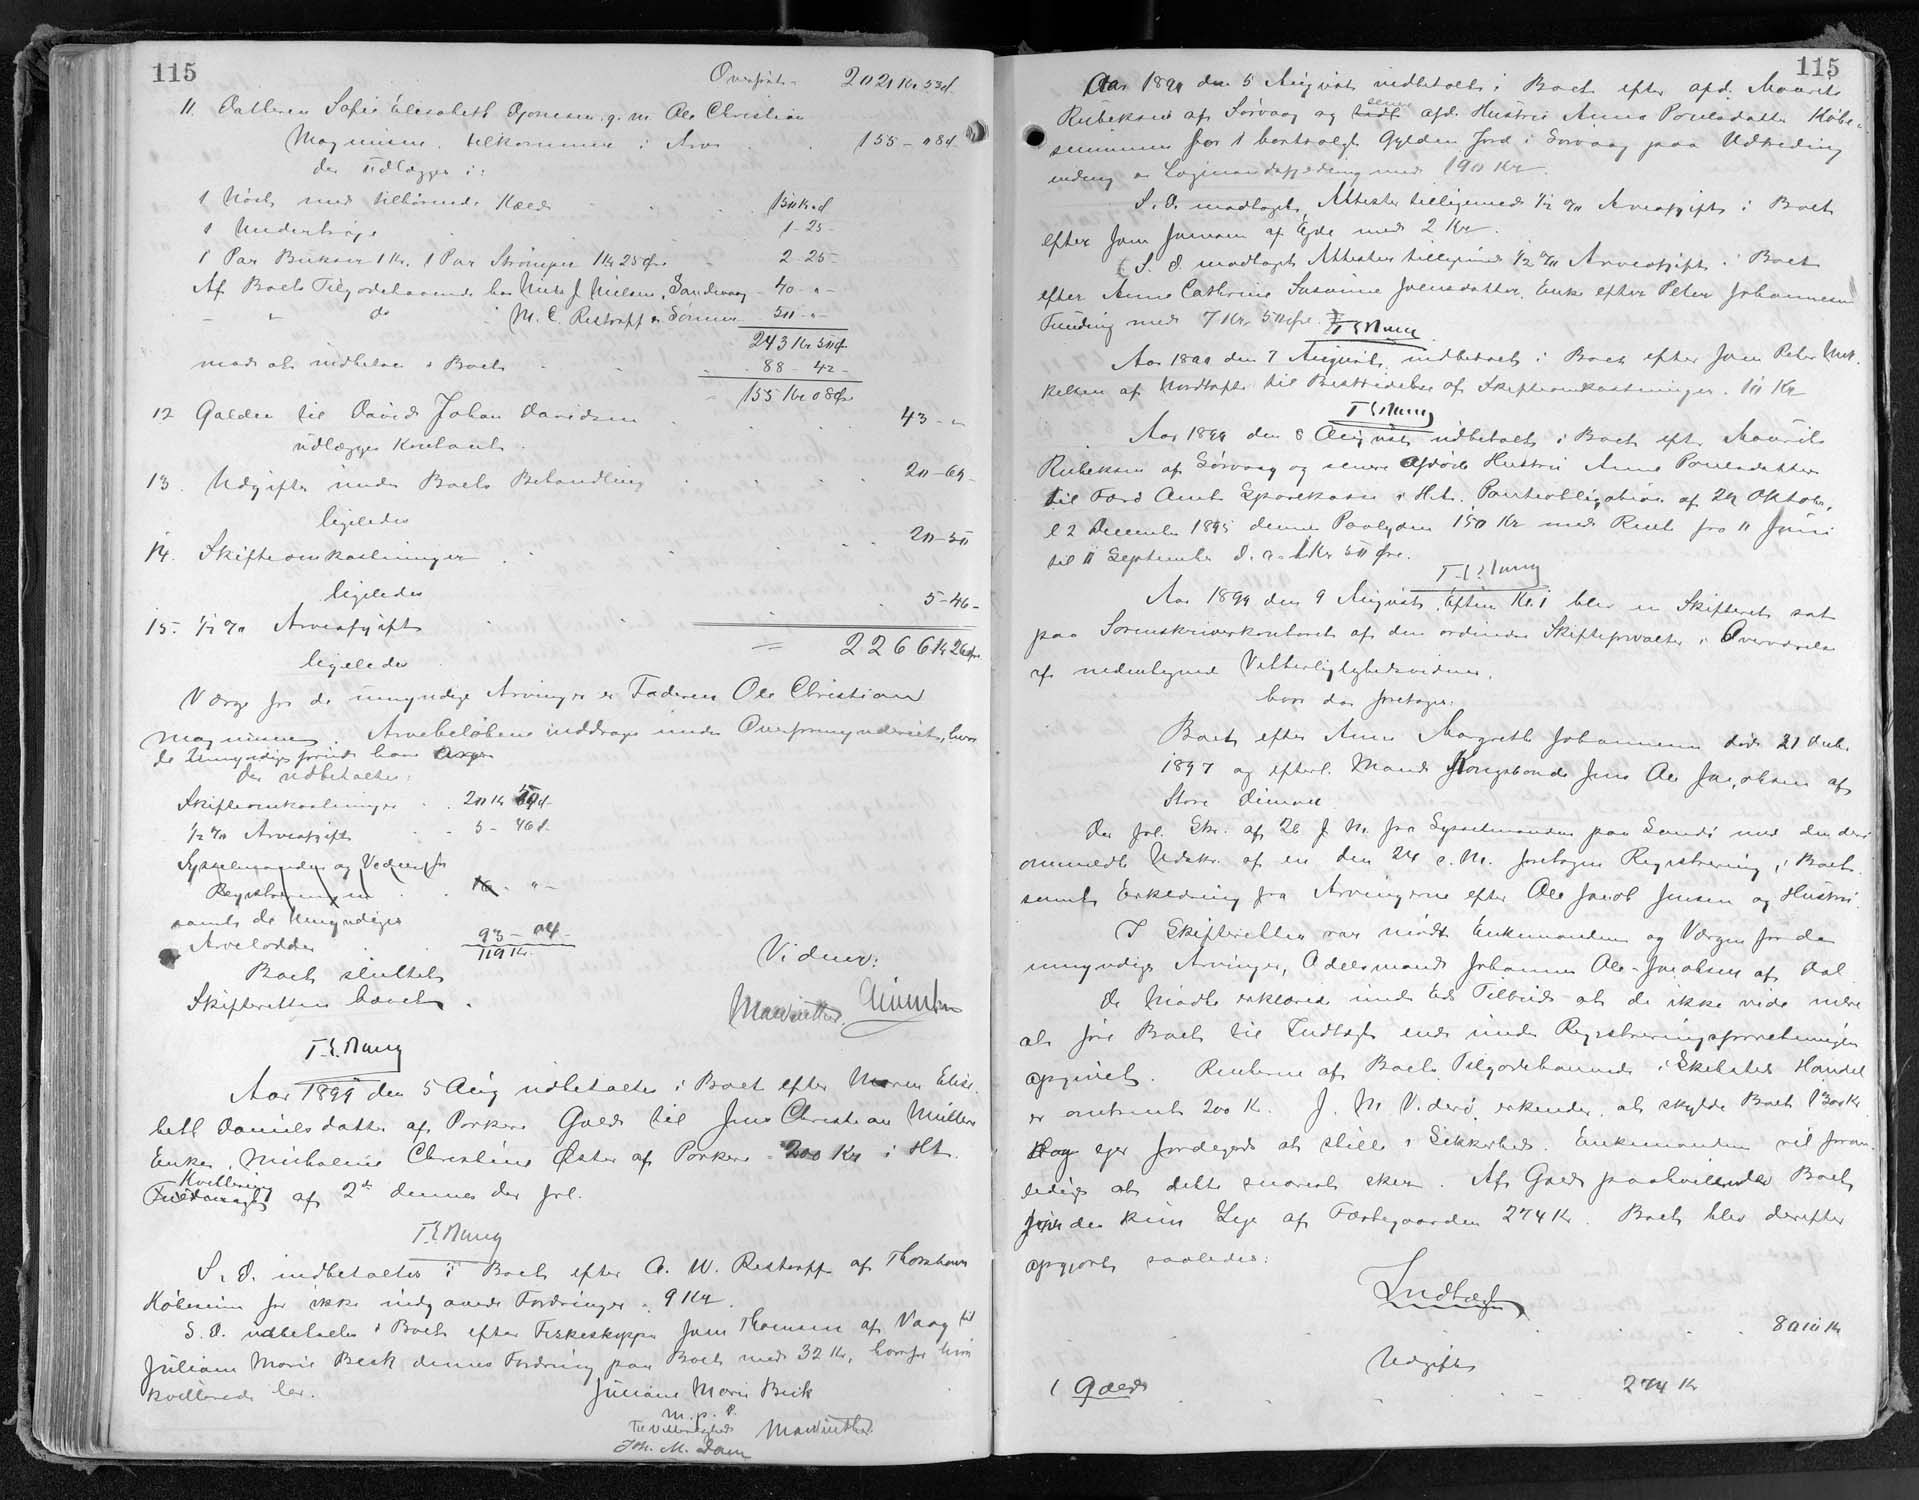 115
Overført - 2021 Kr 53 Ø
11. Datteren Sofie Elisabeth Djonesen g. m. Ole Christian
Magnussen, tilkommer i Arv 155 - 08 Ø
der udlægges i:
1 Nöst med tilhørende Kæld 150 Kr Ø
1 Undertrøje 1 - 25 -
1 Par Buxer 1 Kr. 1 Par Strömper 1 Kr 25 Øre 2 - 25 -
Af Boets Tilgodehavende hos Niels J Nielsen, Sandevaag - 40 - " -
- " - do M. C. Restorff & Sønner 50 - " -
243 Kr 50 Ø
mod at indbetale i Boet 88 - 42 -
155 Kr 08 Øre
12 Gælden til David Johan Davidsen 43 - "
udlægges kontant
13. Udgifter under Boets Behandling 20 - 69 -
ligeledes
14. Skifteomkostninger 20 - 50
ligeledes
15. ½ % Arveafgift 5 - 46 -
ligeledes = 2266 Kr 26 Øre
Værge for de umyndige Arvinger er Faderen Ole Christian
Magnussen. Arvebeløbene inddrages under Overformynderiet, hvor
de Umyndige forud have
der udbetaltes:
Skifteomkostninger 20 Kr 50 Ø
½ % Arveafgift 5 - 46 Ø
Sysselmanden og Vidner for
Registreringen 16 - " -
samt de Umyndiges
Arvelodder 93 - 04 -
119 Kr.
Boet sluttet
Skifteretten hævet.
Vidner:
MaWinther
T. S. Mung
Aar 1899 den 5 Aug udbetaltes i Boet efter Maren Elisa-
beth Danielsdatter af Porkere Gæld til Jens Christian Müllers
Enke, Micholine Christine Øster af Porkere 200 Kr i Ht.
Kvittering
Fuldmagt af 2den dennes der fol.
T. S. Mung
S. D. indbetaltes i Boet efter C. W. Restorff af Thorshavn
Købesum for ikke indgaaede Fordringer. 9 Kr.
S. D. udbetaltes i Boet efter Fiskeskipper Joen Thomsen af Vaag til
Juliane Marie Beck dennes Fordring paa Boet med 32 Kr, hvorfor hun
kvitterede her.
Juliane Marie Beck
m. p. P.
Til Vitterlighed
MaWinther
Joh. M. Dam
115
Aar 1899 den 5 August indbetalt i Boet efter afd. Maurits
Rubeksen af Sørvaag og senere afd. Hustru Anne Poulsdatter Købe-
summen for 1 bortsolgt Gylden Jord i Sørvaag paa Udtreding
190 Kr.
S. D. modtaget Attester tilligemed ½ % Arveafgift i Boet
efter Joen Joensen af Ejde med 2 Kr.
S. D. modtaget Attester tilligemed ½ % Arveafgift i Boet
efter Anne Cathrine Susanne Joensdatter, Enke efter Peter Johannesen
Funding med 7 Kr 50 Øre.
T. S. Mung
Aar 1899 den 7 August, indbetalt i Boet efter Joen Peter Mik-
kelsen af Nordtofte til Bestridelse af Skifteomkostninger. 10 Kr
T. S. Mung
Aar 1899 den 8 August udbetalt i Boet efter Maurits
Rubeksen af Sørvaag og senere afdøde Hustru Anne Poulsdatter
til Færø Amts Sparekasse i Hht. Panteobligation af 24 Oktober,
12 December 1895 dennes Paalydende 150 Kr med Rente fra 11 Juni
til 11 September d. A. 1 Kr 50 Øre.
T. S. Mung
Aar 1899 den 9 August, Eftm Kl. 1 blev en Skifteret sat
paa Sorenskriverkontoret af den ordinære Skifteforvalter i Overværelse
af nedentegnede Vitterlighedsvidner,
hvor da foretoges:
Boet efter Anne Magrethe Johannesen død 21 Decbr.
1897 og efterl. Mand Kongsbonde Jens Ole Jacobsen af
Store Dimon.
Der fol. Skr. af 26 f. M. fra Sysselmanden paa Sandø med den deri
ommeldte Udskr. af en den 24 s. M. foretagen Registrering i Boet
samt Erklæring fra Arvingerne efter Ole Jacob Jensen og Hustru.
I Skifteretten var mødt Enkemanden og Værgen for de
umyndige Arvinger, Odelsmand Johannes Ole Jacobsen af Dal.
De Mødte erklærede under Eds Tilbud at de ikke vide mere
at føre Boet til Indtægt end under Registreringsforretningen
opgivet. Renterne af Boets Tilgodehavende i Skaalefed Handel
er omtrent 200 Kr. J. M. Viderø erkender at skylde Boet 1300 Kr
Han ejer Jordegods at stille i Sikkerhed. Enkemanden vil foran-
ledige at dette snarest sker. Af Gæld paahvilende Boet
findes kun Leje af Fæstegaarden 274 Kr. Boet blev derefter
opgjort saaledes:
Indtægt
8000 Kr
Udgift
1 Gæld 274 Kr